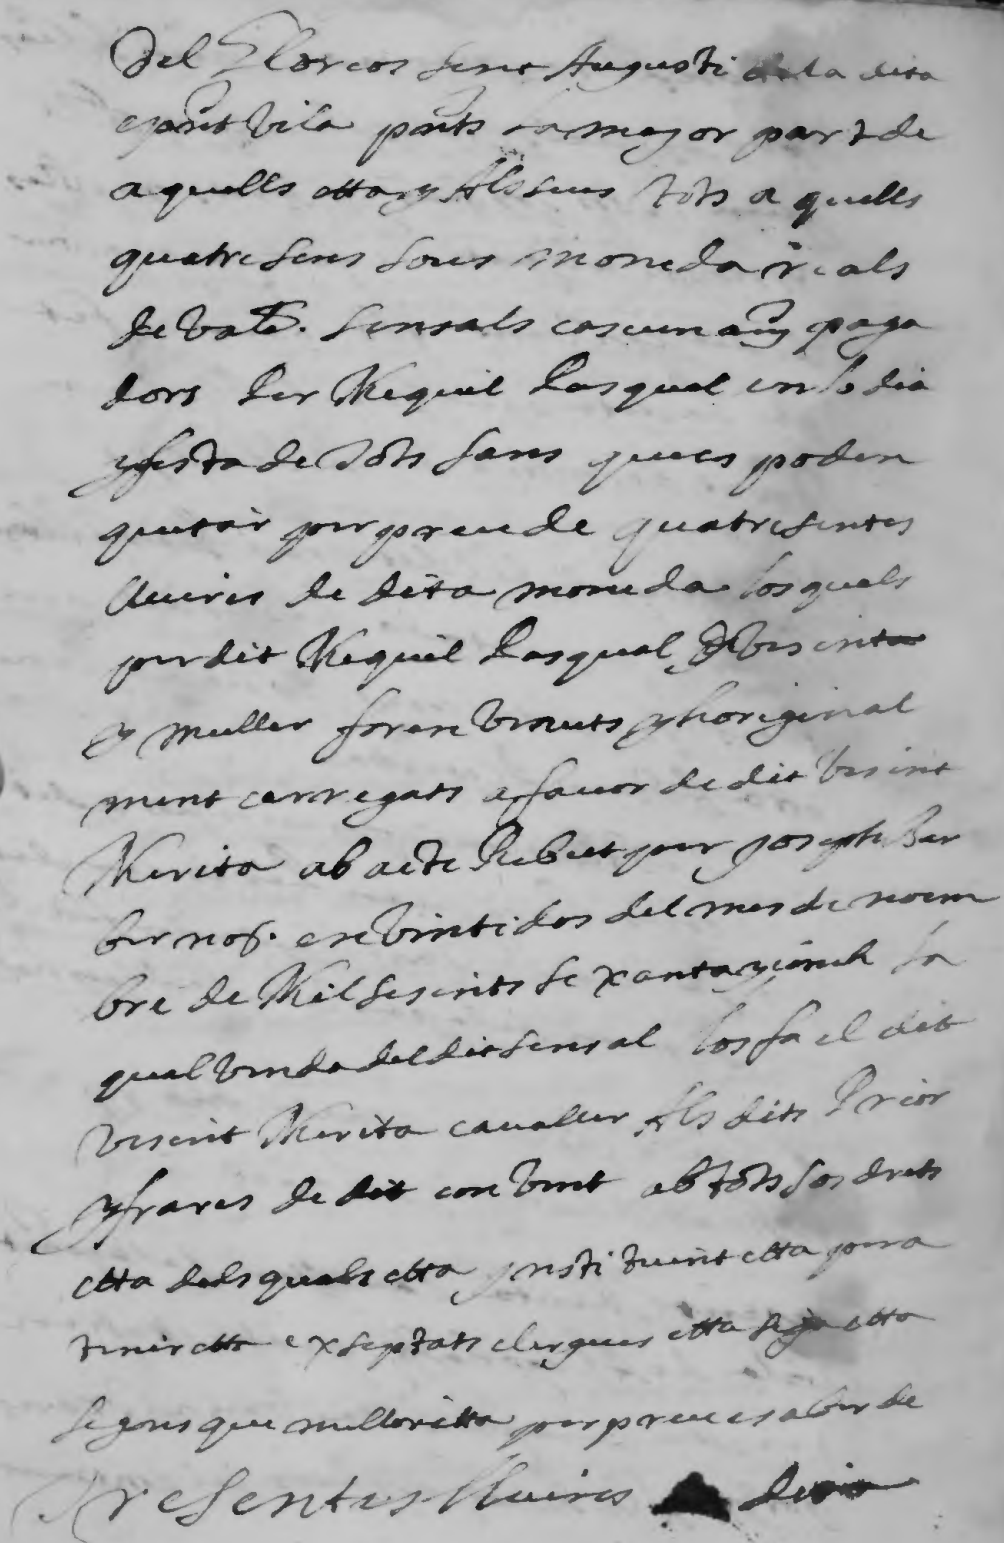 Del Glorios sent Augusti de la dita
pnt vila pnts la major part de
aquells etta y als seus tots aquells
quatresens sous moneda reals
de Vale. sensals cascun any paga
dors per Miquel Pasqual en lo dia
y festa de tots sans ques poden
quitar per preu de quatresentes
lliures de dita moneda los quals
per dit Miquel Pasqual
y muller foren venuts y horiginal
ment carregats a favor de dit Visent
Merita ab acte Rebut per Joseph Bar
ber not. en vinti dos del mes de noem
bre de Mil sesents sexanta y sinch la
qual venda del dit sensal los fa el dit
Visent Merita cavaller Als dits Prior
y frares de dit convent ab tots los drets
etta dels quals etta ynstituint etta pera
tenir etta exseptats clergues etta etta
segons que millor etta per preu es aber de
Tresentes lliures